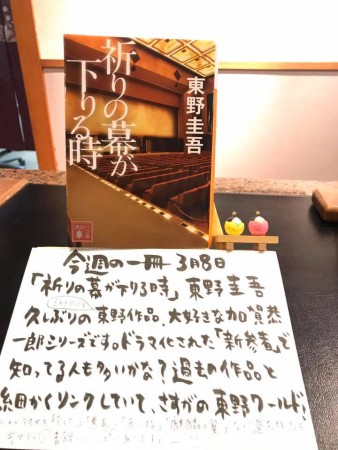 祈りの幕が
下りる時
東野圭吾
今週の一冊 3月8日
「祈りの幕が下りる時」東野圭吾
久しぶりの東野作品、大好きな加賀恭
一郎シリーズです。ドラマ化された「新参者」で
知ってる人も多いかな？過去の作品と
細かくリンクしていて、さすがの東野ワールド！